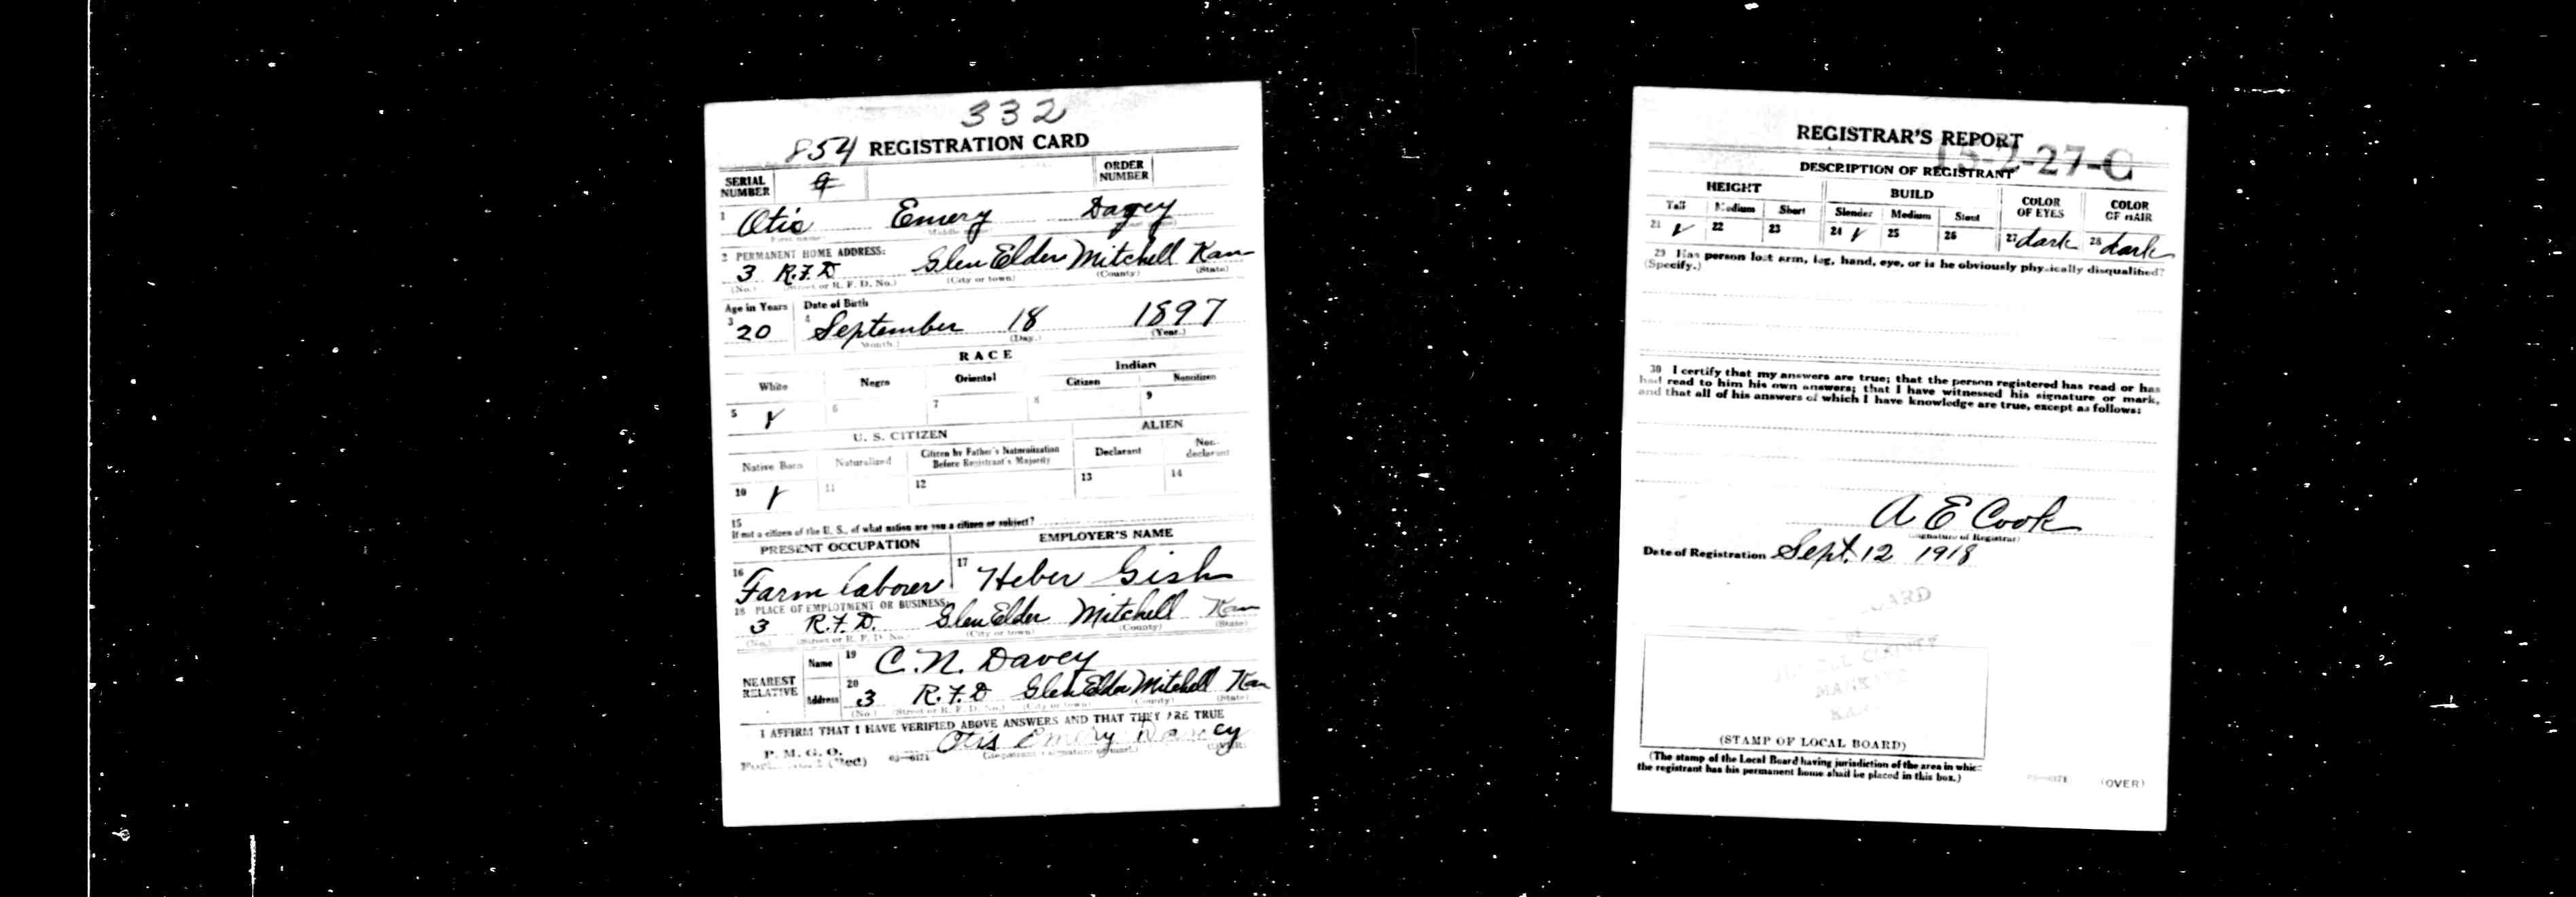 332
854 REGISTRATION CARD
SERIAL NUMBER
ORDER NUMBER
1 Otis Emery Davey
2 PERMANENT HOME ADDRESS:
3 R.F.D Glen Elder Mitchell Kan
(No.) (Street or R. F. D. No.) (City or town) (County) (State)
Age in Years Date of Birth
3 20 4 September 18 1897
(Month.) (Day.) (Year.)
RACE
White Negro Oriental Indian
Citizen Noncitizen
5 ✓ 6 7 8 9
U. S. CITIZEN ALIEN
Native Born Naturalized Citizen by Father's Naturalization Before Registrant's Majority Declarant Non-declarant
10 ✓ 11 12 13 14
15
If not a citizen of the U. S., of what nation are you a citizen or subject?
PRESENT OCCUPATION EMPLOYER'S NAME
16 Farm laborer 17 Heber Gish
18 PLACE OF EMPLOYMENT OR BUSINESS:
3 R.F.D. Glen Elder Mitchell Kan
(No.) (Street or R. F. D. No.) (City or town) (County) (State)
NEAREST RELATIVE
Name 19 C. N. Davey
Address 20 3 R.F.D Glen Elder Mitchell Kan
(No.) (Street or R. F. D. No.) (City or town) (County) (State)
I AFFIRM THAT I HAVE VERIFIED ABOVE ANSWERS AND THAT THEY ARE TRUE
P. M. G. O.
(Red) 03—6171 Otis Emery Davey
(Registrant's signature or mark.) (OVER)
REGISTRAR'S REPORT
15-2-27-C
DESCRIPTION OF REGISTRANT
HEIGHT BUILD COLOR OF EYES COLOR OF HAIR
Tall Medium Short Slender Medium Stout
21 ✓ 22 23 24 ✓ 25 26 27 dark 28 dark
29 Has person lost arm, leg, hand, eye, or is he obviously physically disqualified?
(Specify.)
30 I certify that my answers are true; that the person registered has read or has
had read to him his own answers; that I have witnessed his signature or mark,
and that all of his answers of which I have knowledge are true, except as follows:
A E Cook
(Signature of Registrar)
Date of Registration Sept. 12 1918
(STAMP OF LOCAL BOARD)
(The stamp of the Local Board having jurisdiction of the area in which
the registrant has his permanent home shall be placed in this box.)
03—6171 (OVER)